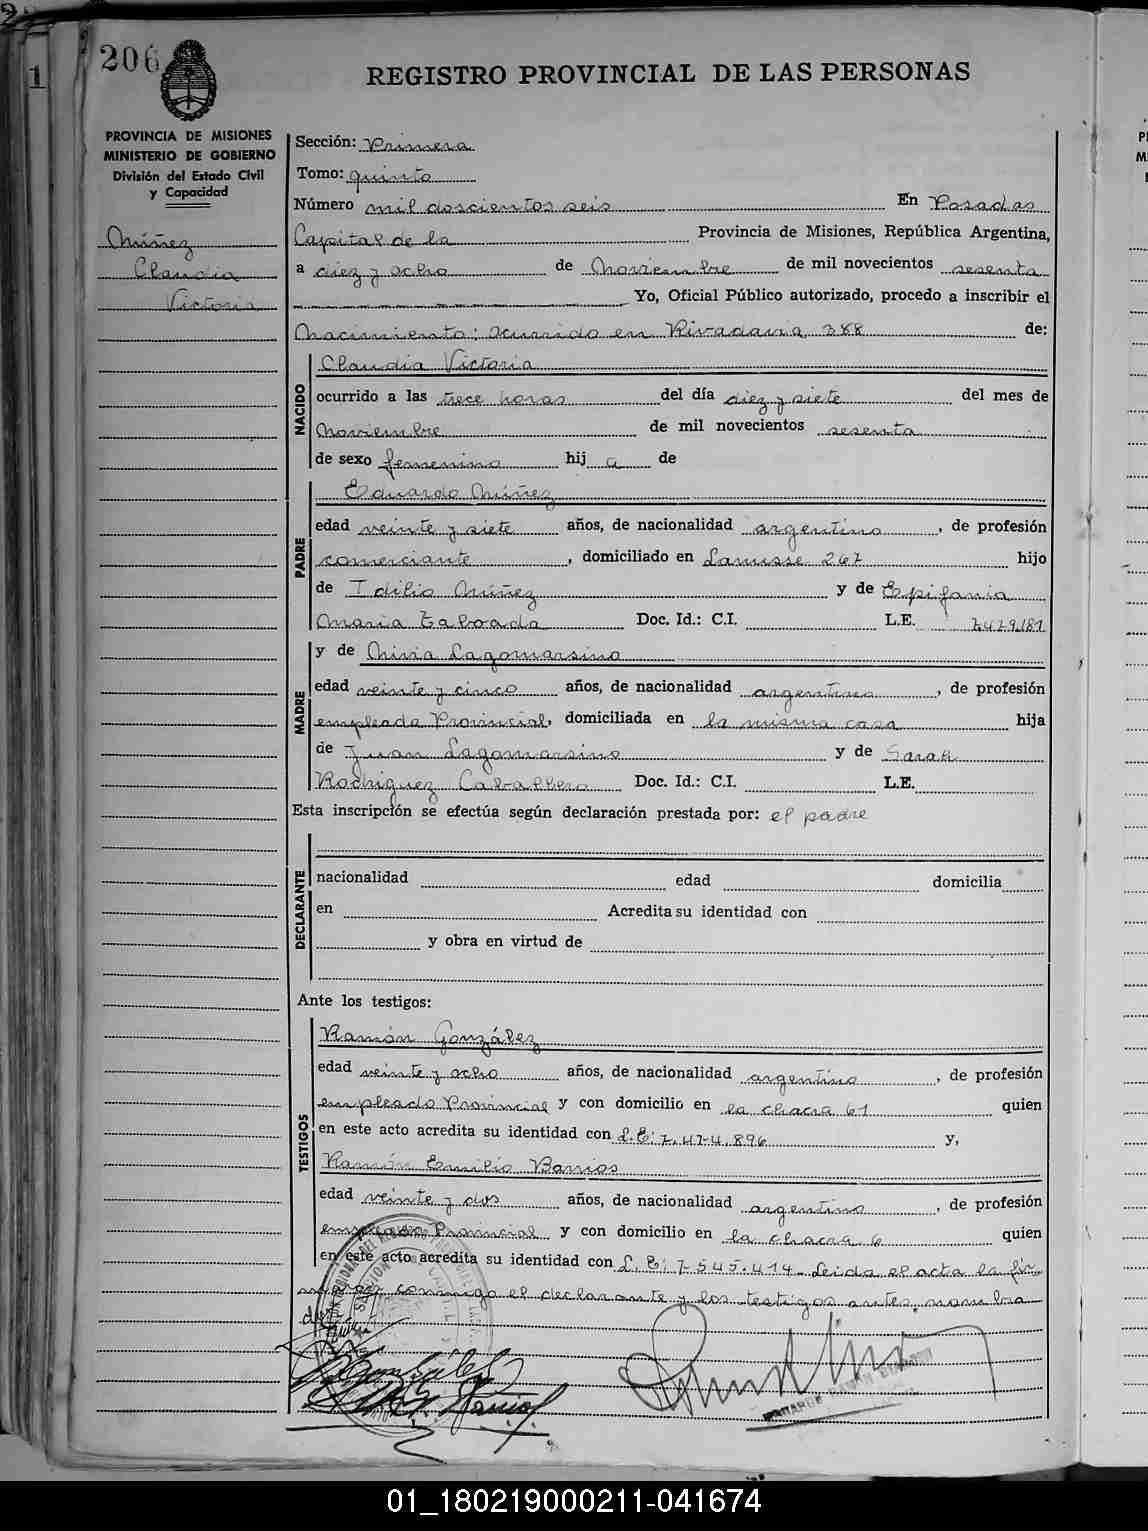 206
REGISTRO PROVINCIAL DE LAS PERSONAS
1
PROVINCIA DE MISIONES
MINISTERIO DE GOBIERNO
División del Estado Civil
y Capacidad
Núñez
Claudia
Victoria
Sección: Primera
Tomo: quinto
Número mil doscientos seis En Posadas
Capital de la Provincia de Misiones, República Argentina,
a diez y ocho de Noviembre de mil novecientos sesenta
Yo, Oficial Público autorizado, procedo a inscribir el
Nacimiento: ocurrido en Rivadavia 388 de:
NACIDO
Claudia Victoria
ocurrido a las trece horas del día diez y siete del mes de
Noviembre de mil novecientos sesenta
de sexo femenino hij a de
PADRE
Eduardo Núñez
edad veinte y siete años, de nacionalidad argentino, de profesión
comerciante, domiciliado en Lanusse 267 hijo
de Idilio Núñez y de Epifania
Maria Taboada Doc. Id.: C.I. L.E. 7.479.181
MADRE
y de Nivia Lagomarsino
edad veinte y cinco años, de nacionalidad argentina, de profesión
empleada Provincial, domiciliada en la misma casa hija
de Juan Lagomarsino y de Sarah
Rodriguez Caballero Doc. Id.: C.I. L.E.
Esta inscripción se efectúa según declaración prestada por: el padre
DECLARANTE
nacionalidad edad domicilia
en Acredita su identidad con
y obra en virtud de
Ante los testigos:
TESTIGOS
Ramón González
edad veinte y ocho años, de nacionalidad argentino, de profesión
empleado Provincial y con domicilio en la chacra 61 quien
en este acto acredita su identidad con L.E: 7.474.896 y,
Ramón Emilio Barrios
edad veinte y dos años, de nacionalidad argentino, de profesión
empleado Provincial y con domicilio en la chacra 6 quien
en este acto acredita su identidad con L.E: 7.545.414. Leida el acta la fir
man conmigo el declarante y los testigos antes nombra
dos
01_180219000211-041674